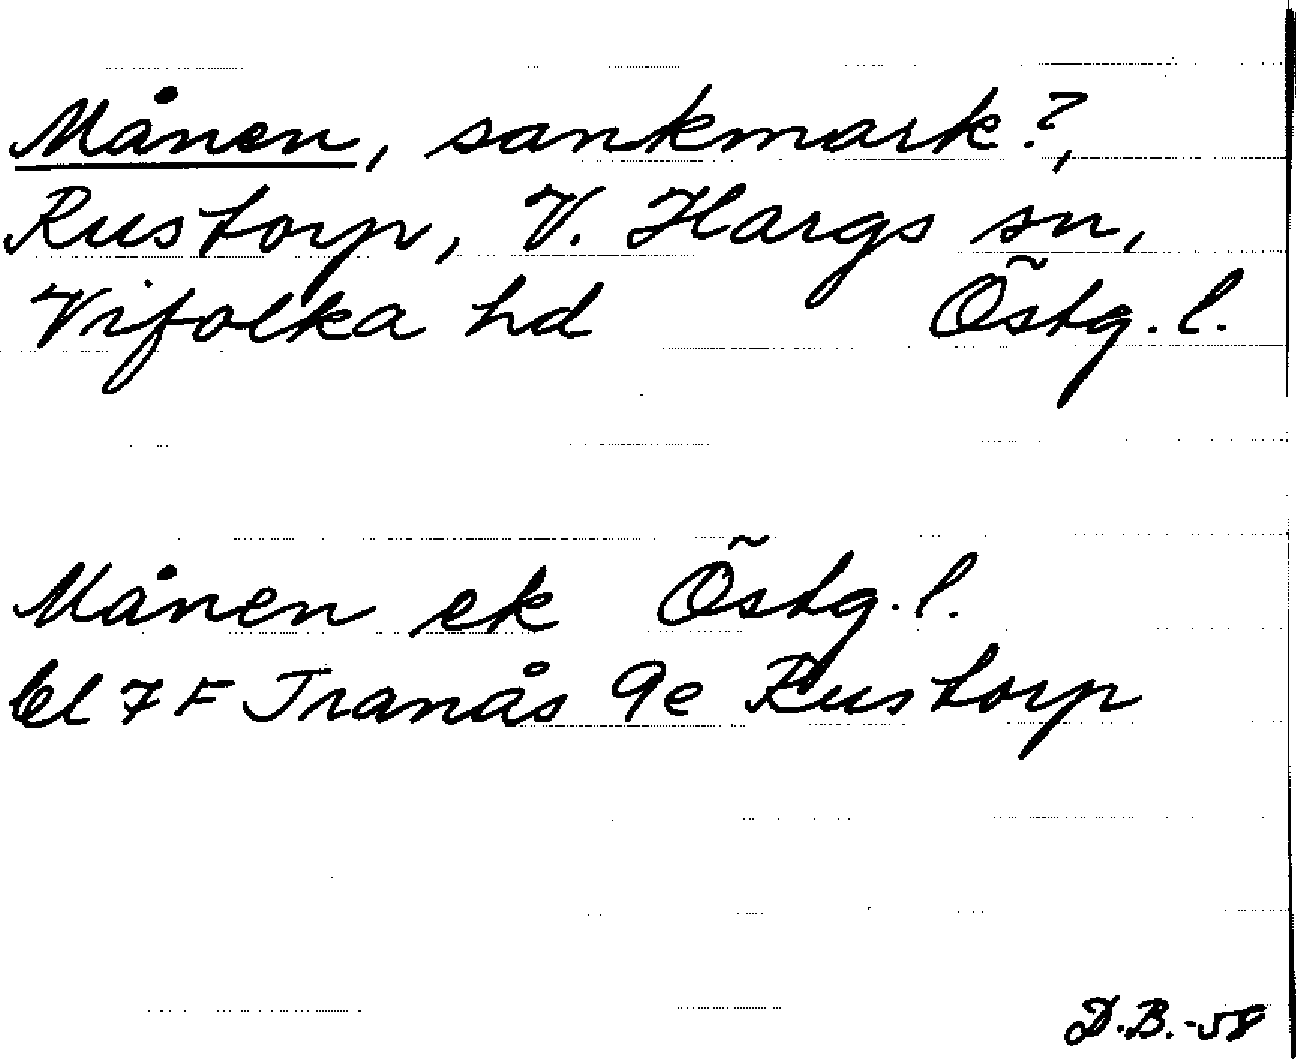 Månen, sankmark?,
Rustorp, V. Hargs sn,
Vifolka hd Östg. l.
Månen ek Östg. l.
bl 7 F Tranås 9e Rustorp
D.B.-58